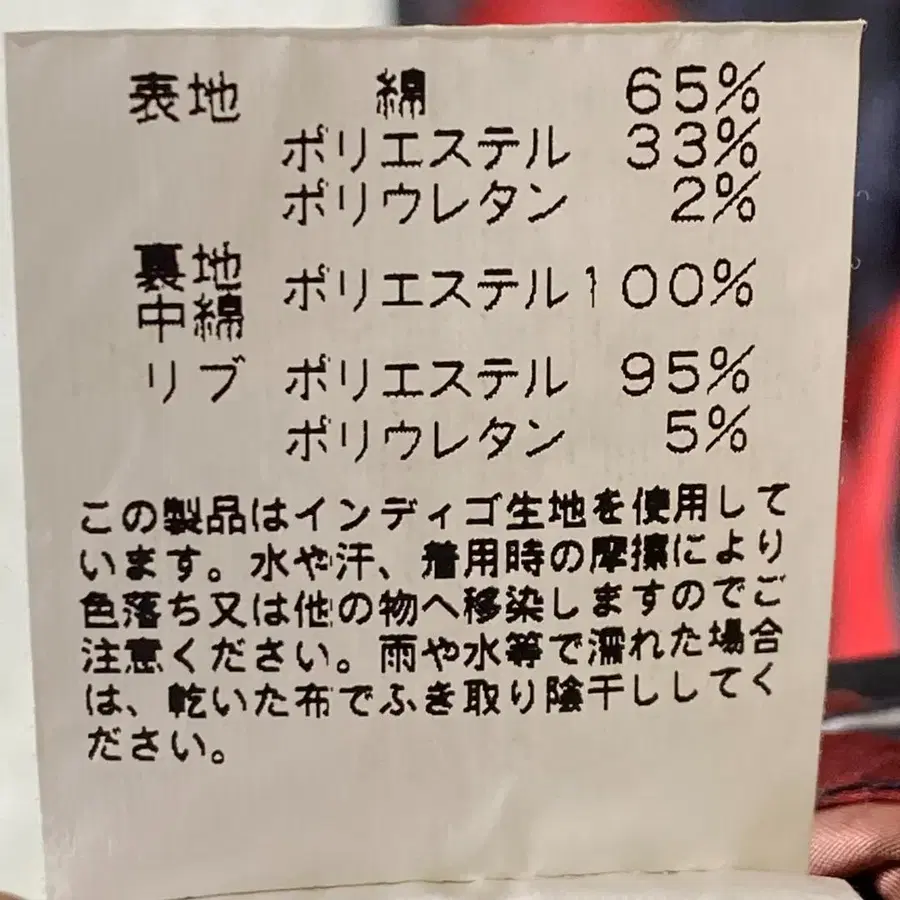 表地 綿 65%
ポリエステル 33%
ポリウレタン 2%
裏地
中綿 ポリエステル100%
リブ ポリエステル 95%
ポリウレタン 5%
この製品はインディゴ生地を使用して
います。水や汗、着用時の摩擦により
色落ち又は他の物へ移染しますのでご
注意ください。雨や水等で濡れた場合
は、乾いた布でふき取り陰干ししてく
ださい。